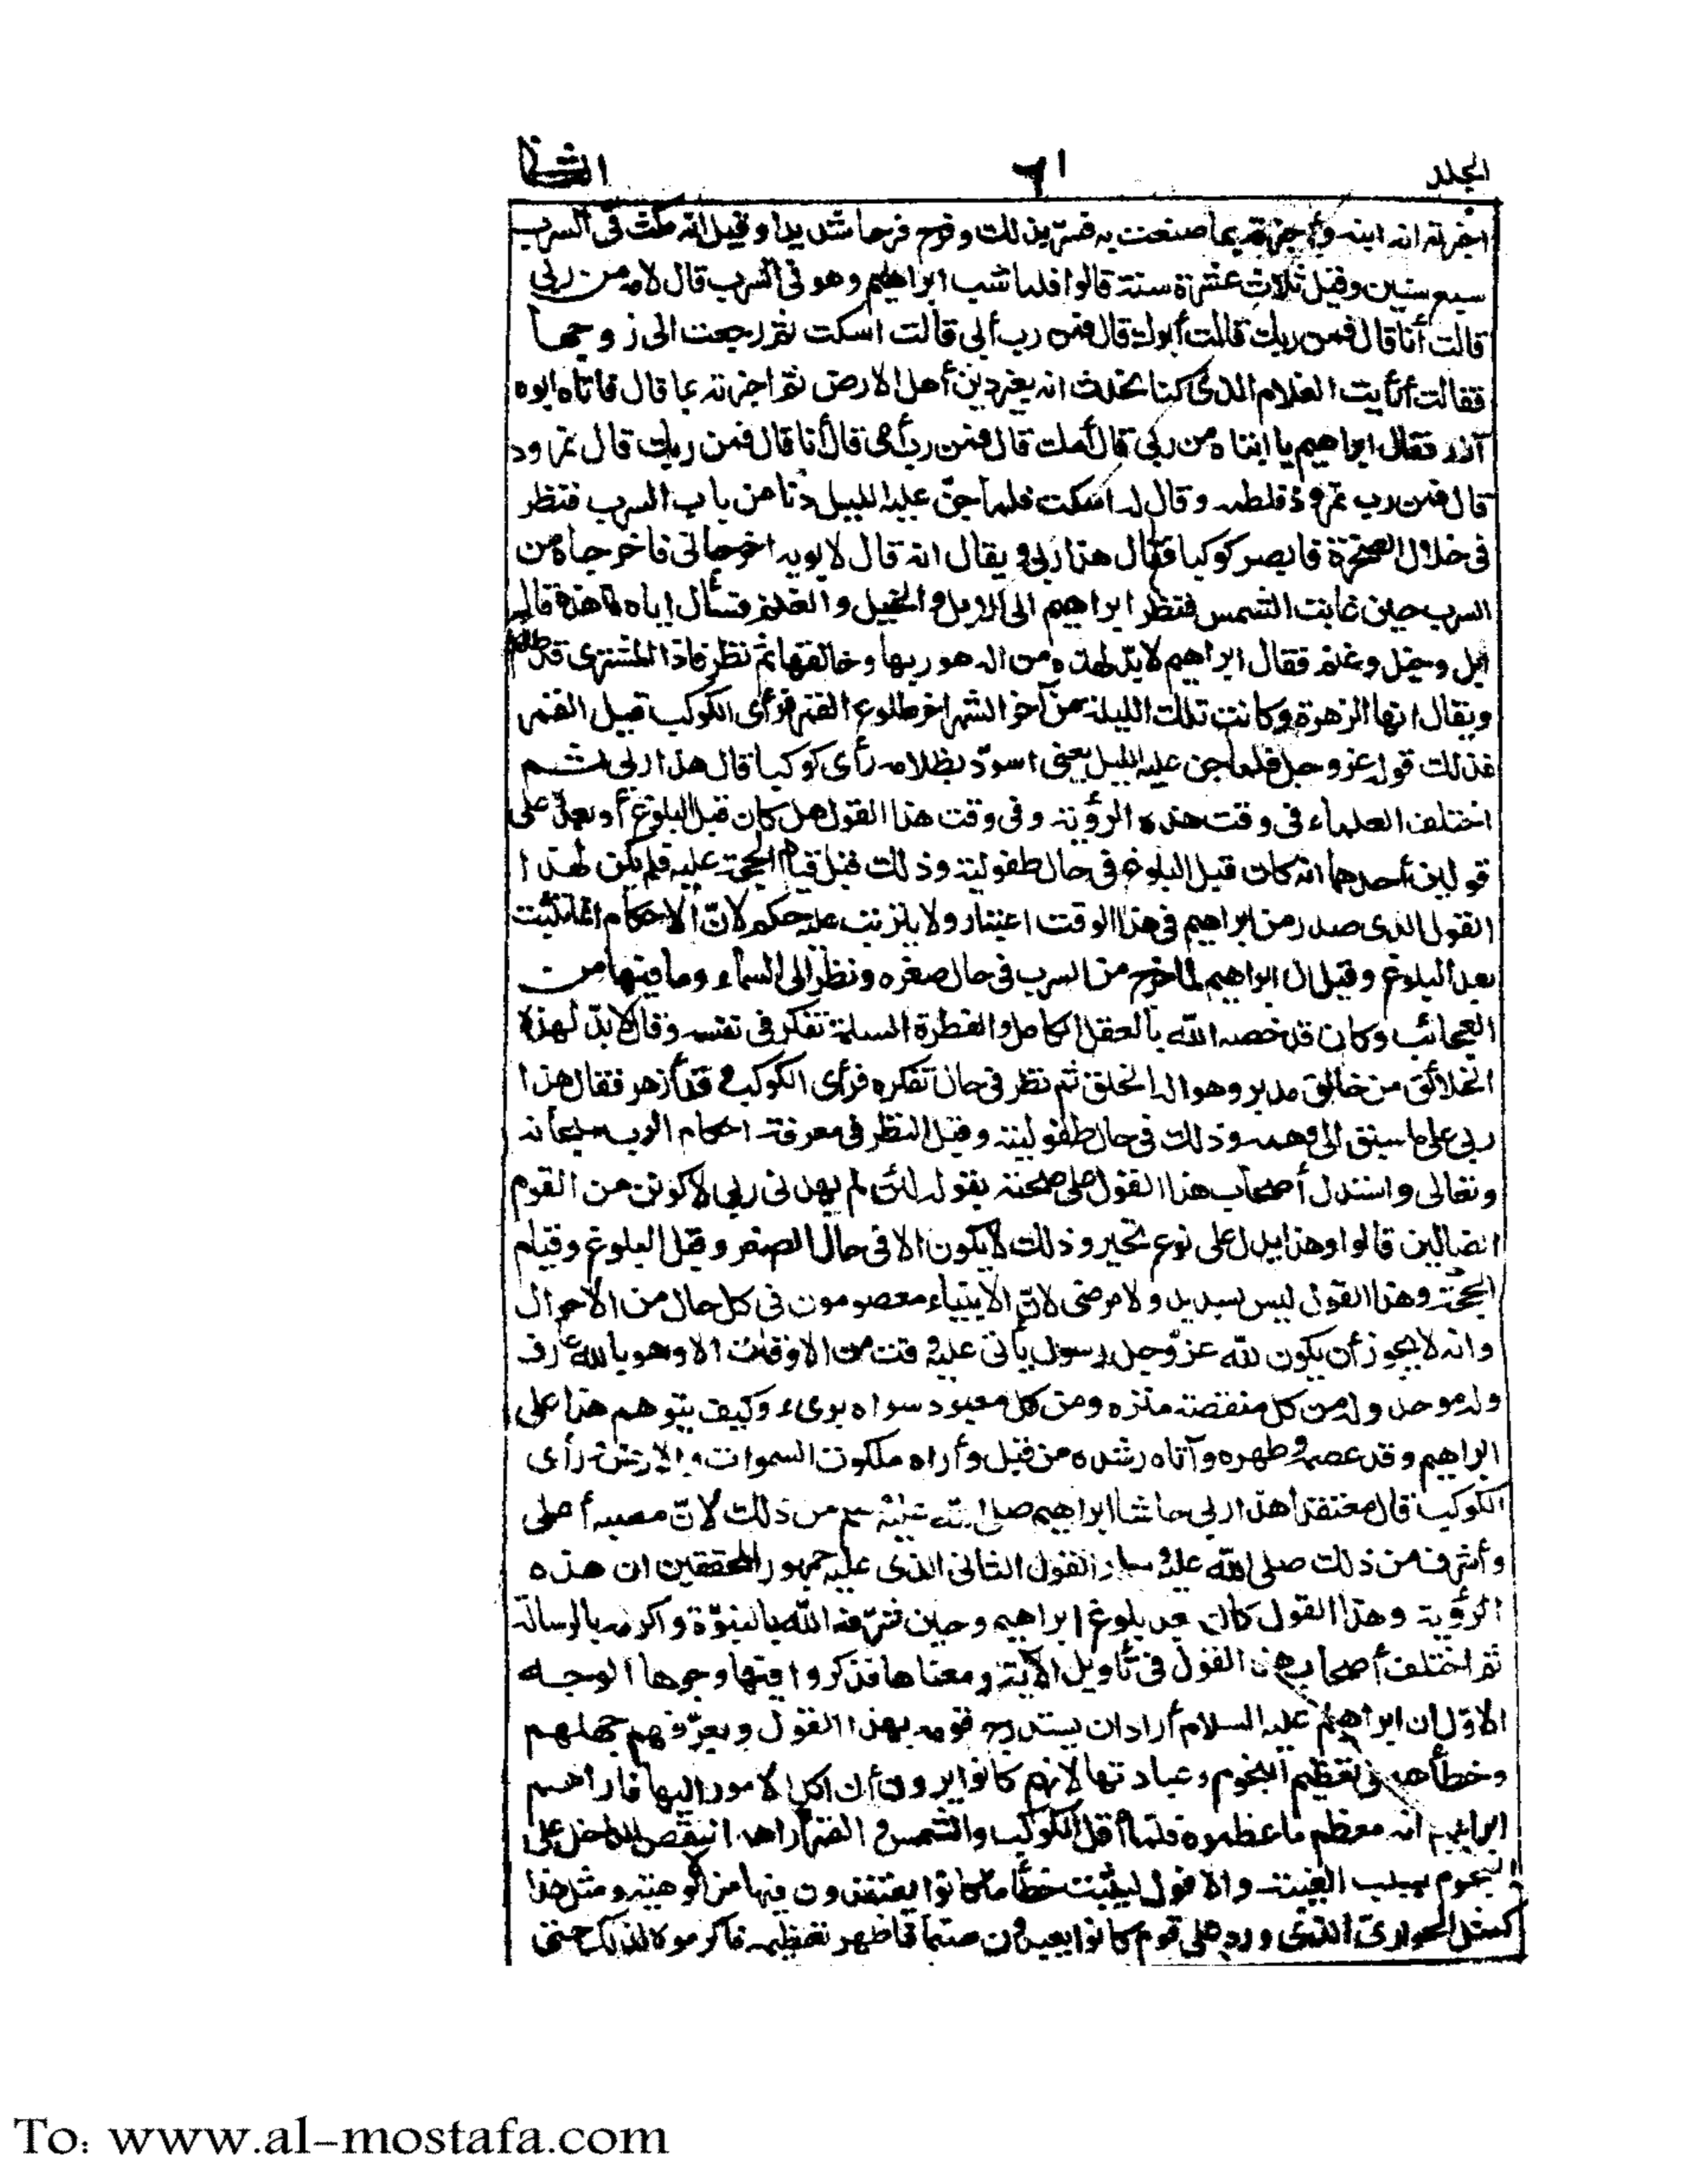 المجلد ٦١ الثانى
اخبرته انه ابنه وأخبرته بما صنعت به فسر بذلك وفرح فرحا شديدا وقيل انه مكث فى السرب
سبع سنين وقيل ثلاث عشرة سنة قالوا فلما شب ابراهيم وهو فى السرب قال لامه من ربى
قالت أنا قال فمن ربك قالت أبوك قال فمن رب أبى قالت اسكت ثم رجعت الى زوجها
فقالت أرأيت الغلام الذى كنا نحدث انه يغير دين أهل الارض ثم اخبرته بما قال فاتاه ابوه
آزر فقال ابراهيم يا ابتاه من ربى قال أمك قال فمن رب أمى قال أنا قال فمن ربك قال نمرود
قال فمن رب نمروذ فلطمه وقال له اسكت فلما جنّ عليه الليل دنا من باب السرب فنظر
فى خلال الصخرة فابصر كوكبا فقال هذا ربى ويقال انه قال لابويه اخرجانى فاخرجاه من
السرب حين غابت الشمس فنظر ابراهيم الى الابل والخيل والغنم فسأل اباه ما هذه قال
ابل وخيل وغنم فقال ابراهيم لا بدّ لهذه من اله هو ربها وخالقها ثم نظر فاذا المشترى قد طلع
ويقال انها الزهرة وكانت تلك الليلة من آخر الشهر اخر طلوع القمر فرأى الكوكب قبل القمر
فذلك قوله عز وجل فلما جن عليه الليل يعنى اسودّ بظلامه رأى كوكبا قال هذا ربى ثم
اختلف العلماء فى وقت هذه الرؤية وفى وقت هذا القول هل كان قبل البلوغ أو بعده على
قولين أحدهما انه كان قبل البلوغ فى حال طفوليته وذلك قبل قيام الحجة عليه فلم يكن لهذا
القول الذى صدر من ابراهيم فى هذا الوقت اعتبار ولا يترتب عليه حكم لانّ الاحكام انما تثبت
بعد البلوغ وقيل ان ابراهيم لما خرج من السرب فى حال صغره ونظر الى السماء وما فيها من
العجائب وكان قد خصه الله بالعقل الكامل والفطرة السليمة تفكر فى نفسه وقال لا بدّ لهذه
الخلائق من خالق مدبر وهو اله الخلق ثم نظر فى حال تفكره فرأى الكوكب وقد أزهر فقال هذا
ربى على ما سبق الى وهمه وذلك فى حال طفوليته وقبل النظر فى معرفة احكام الرب سبحانه
وتعالى واستدل أصحاب هذا القول على صحته بقوله لئن لم يهدنى ربى لاكونن من القوم
الضالين قالوا وهذا يدل على نوع تحير وذلك لا يكون الا فى حال الصغر وقبل البلوغ وقيام
الحجة وهذا القول ليس بسديد ولا مرضى لانّ الانبياء معصومون فى كل حال من الاحوال
وانه لا يجوز أن يكون لله عز وجل رسول يأتى عليه وقت من الاوقات الا وهو بالله عارف
وله موحد وله من كل منقصة منزه ومن كل معبود سواه برىء وكيف يتوهم هذا على
ابراهيم وقد عصمه وطهره وآتاه رشده من قبل وأراه ملكوت السموات والارض رأى
الكوكب قال معتقدا هذا ربى حاشا ابراهيم صلى الله عليه وسلم من ذلك لانّ منصبه أعلى
وأشرف من ذلك صلى الله عليه وسلم القول الثانى الذى عليه جمهور المحققين ان هذه
الرؤية وهذا القول كان بعد بلوغ ابراهيم وحين شرّفه الله بالنبوّة واكرمه بالرسالة
ثم اختلف أصحاب هذا القول فى تأويل الآية ومعناها فذكروا فيها وجوها الوجه
الاوّل ان ابراهيم عليه السلام أراد ان يستدرج قومه بهذا القول ويعرّفهم جهلهم
وخطأهم فى تعظيم النجوم وعبادتها لانهم كانوا يرون أن كل الامور اليها فاراهم
ابراهيم انه معظم ما عظموه فلما أفل الكوكب والشمس والقمر أراهم النقص الداخل على
النجوم بسبب الغيبة والافول ليثبت خطأ ما كانوا يعتقدون فيها من الالوهية ومثل هذا
كمثل الحوارى الذى ورد على قوم كانوا يعبدون صنما فاظهر تعظيمه فاكرموه لذلك حتى
To: www.al-mostafa.com